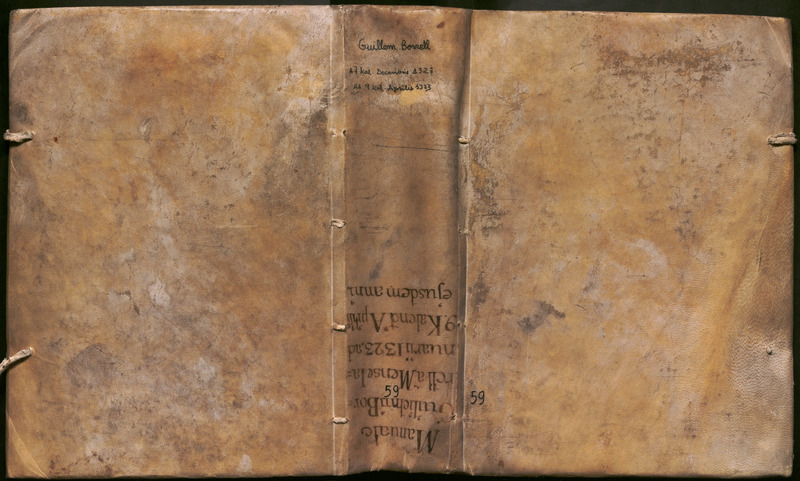 Guillem Borrell
A 7 kal. Decembris 1322
Ad 9 kal. Aprilis 1323
59
59
Manuale
Guilielmi Bor=
rell à Mense Ja=
nuarii 1323. ad
9. Kalend. Aprilis
ejusdem anni.